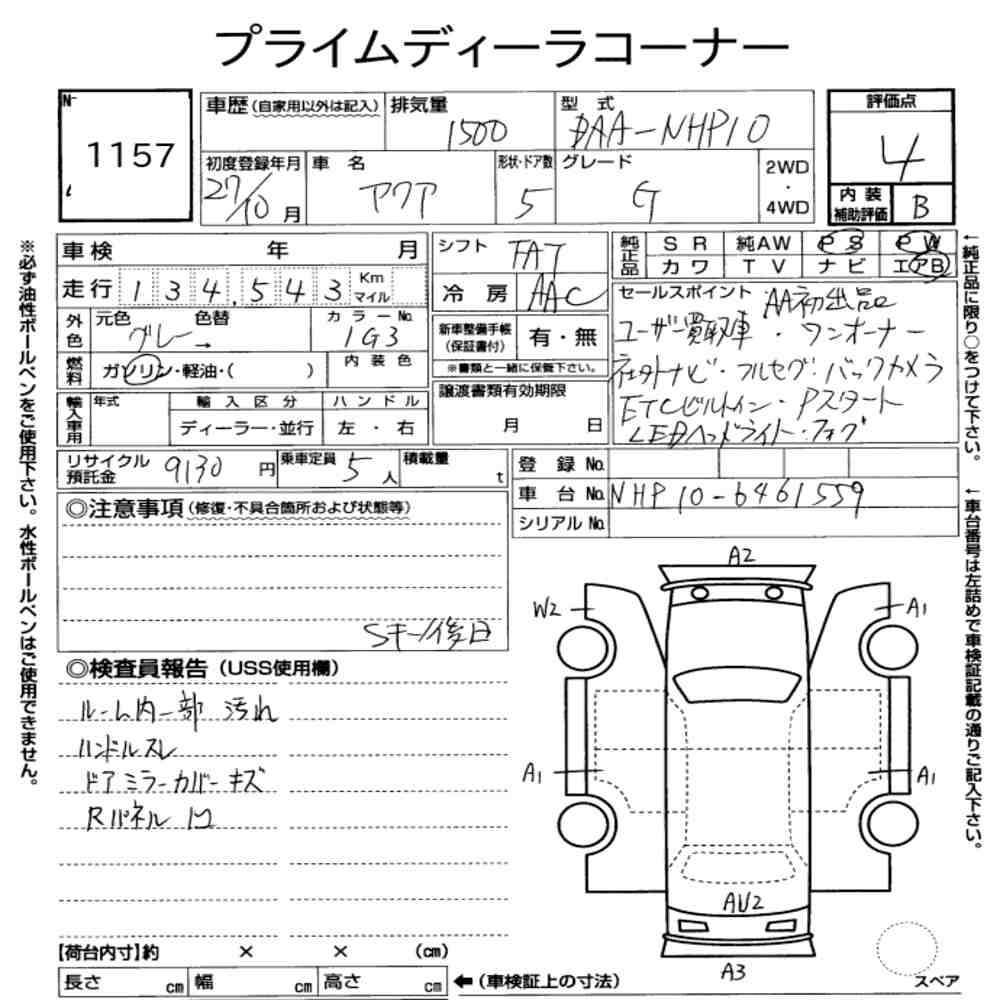 プライムディーラコーナー
No
1157
車歴 (自家用以外は記入)
排気量
1500
型 式
DAA-NHP10
評価点
4
内装
補助評価
B
初度登録年月
27/10 月
車 名
アクア
形状・ドア数
5
グレード
G
2WD
・
4WD
車検 年 月
走行 134,543 Km
マイル
シフト
FAT
冷 房
AAC
純正品
SR 純AW PS PW
カワ TV ナビ エアB
外色
元色 色替
グレー→
カラーNo.
1G3
燃料
ガソリン・軽油・( )
内装色
新車整備手帳
(保証書付)
有・無
※書類と一緒に保管下さい。
輸入車用
年式
輸入区分
ディーラー・並行
ハンドル
左・右
譲渡書類有効期限
月 日
セールスポイント AA初出品
ユーザー買取車・ワンオーナー
社外ナビ・フルセグ・バックカメラ
ETCビルトイン・Pスタート
LEDヘッドライト・フォグ
リサイクル
預託金
9130 円
乗車定員 5 人
積載量 t
登 録 No.
車 台 No. NHP10-6461559
シリアル No.
◎注意事項 (修復・不具合箇所および状態等)
Sキー後日
◎検査員報告 (USS使用欄)
ルーム内一部 汚れ
ハンドルスレ
ドアミラーカバーキズ
Rパネル凹
A2
W2
A1
A1
A1
AU2
A3
スペア
【荷台内寸】約 × × (cm)
長さ cm 幅 cm 高さ cm ←(車検証上の寸法)
※必ず油性ボールペンをご使用下さい。水性ボールペンはご使用できません。
←純正品に限り○をつけて下さい。
←車台番号は左詰めで車検証記載の通りご記入下さい。